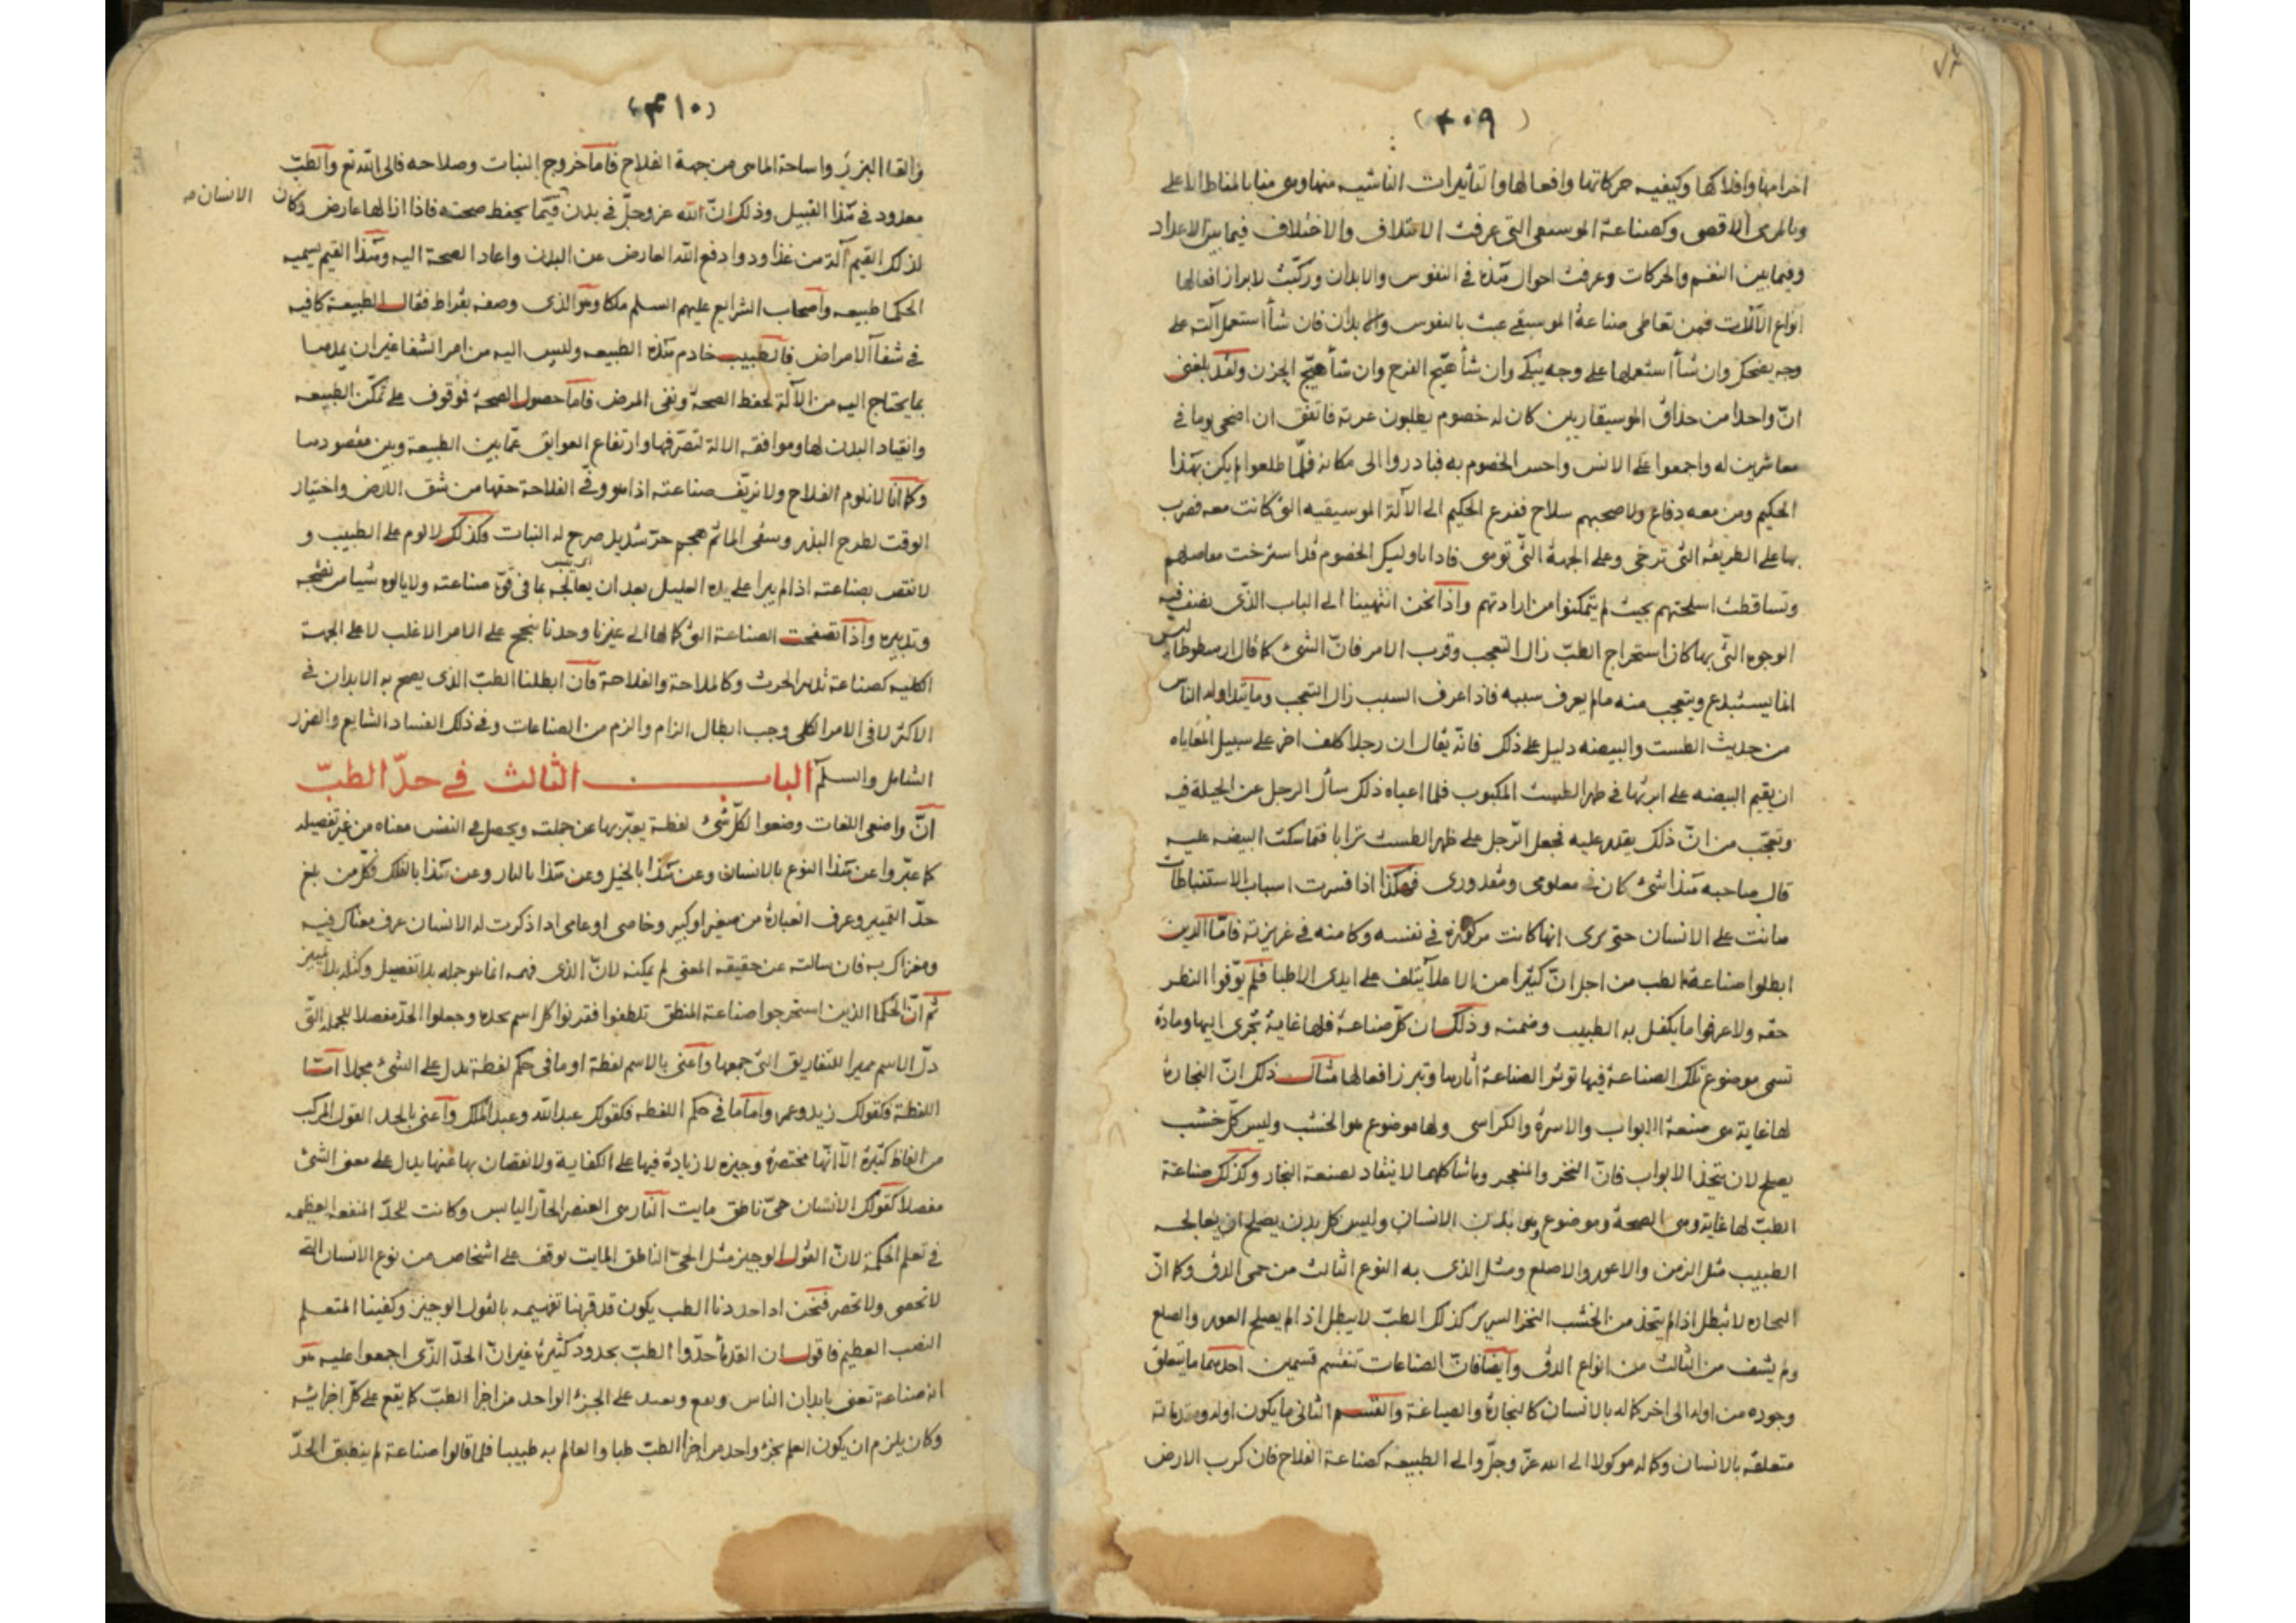 (٤٠٩)
اجرامها وافلاكها وكيفيه حركاتها وافعالها والتاثيرات الناشيه منها وهى منا بالمناط الاعلى
وبالمرمى الاقصى وكصناعة الموسيقى التى عرفت الائتلاف والاختلاف فيما بين الاعداد
وفيما بين النغم والحركات وعرفت احوال هذه فى النفوس والابدان وركبت لابراز افعالها
انواع الآلات فمن تعاطى صناعة الموسيقى عبث بالنفوس والابدان فان شأ استعمل آلته على
وجه يضحك وان شأ استعملها على وجه يبكى وان شأ هيّج الفرح وان شأ هيّج الحزن ولقد بلغنى
انّ واحدا من حذاق الموسيقاريين كان له خصوم يطلبون غرته فاتفق ان اضحى يوما فى
معاشرين له واجمعوا على الانس واحس الخصوم به فبادروا الى مكانه فلمّا طلعوا لم يكن بهذا
الحكيم ومن معه دفاع ولا صحبهم سلاح ففزع الحكيم الى الآلة الموسيقيه التى كانت معه فضرب
بها على الطريقه التى ترخى وعلى الجهة التى توهى فاذا باوليك الخصوم قد استرخت مفاصلهم
وتساقطت اسلحتهم بحيث لم يتمكنوا من ارادتهم واذا نحن انتهينا الى الباب الذى نصنف فيه
الوجوه التى بها كان استخراج الطبّ زال التعجب وقرب الامر فانّ الشئ كما قال ارسطوطاليس
انما يستبدع ويتعجب منه مالم يعرف سببه فاذا عرف السبب زال التعجب وما يتداوله الناس
من حديث الطست والبيضه دليل على ذلك فانه يقال ان رجلا كلف اخر على سبيل المعاياه
ان يقيم البيضه على ابرتها فى ظهر الطست المكبوب فلما اعياه ذلك سأل الرجل عن الحيلة فيه
وتعجّب من انّ ذلك يقدر عليه فجعل الرّجل على ظهر الطست ترابا فتماسكت البيضه عليه
قال صاحبه هذا شئ كان فى معلومى ومقدورى فهكذا اذا فسرت اسباب الاستنباطات
هانت على الانسان حتى يرى انها كانت مركوزة فى نفسه وكامنه فى غريزته فامّا الذين
ابطلوا صناعة الطب من اجل انّ كثيرا من الاعلآ يتلف على ايدى الاطبا فلم يوّفوا النظر
حقه ولا عرفوا ما يكفل به الطبيب وضمنه وذلك ان كلّ صناعة فلها غاية تجرى اليها ومادة
تسمى موضوع تلك الصناعة فيها توثر الصناعة آثارها وتبرز افعالها مثال ذلك انّ النجارة
لها غاية هى صنعة الابواب والاسرة والكراسى ولها موضوع هو الخشب وليس كلّ خشب
يصلح لان يتخذ الابواب فانّ النخر والمنعجر وما شاكلهما لا ينقاد لصنعة النجار وكذلك صناعة
الطبّ لها غاية وهى الصحة وموضوع وهو بدن الانسان وليس كل بدن يصلح ان يعالجه
الطبيب مثل الزمن والاعور والاصلع ومثل الذى به النوع الثالث من حمى الدق وكما انّ
النجاره لا تبطل اذا لم يتخذ من الخشب النخر السرير كذلك الطبّ لا يبطل اذ لم يصلح العور والصلع
ولم يشف من الثالث من انواع الدق وايضا فانّ الصناعات تنقسم قسمين احدهما ما يتعلق
وجوده من اوله الى اخر كماله بالانسان كالنجارة والصياغة والقسم الثانى ما يكون اوله
متعلقه بالانسان وكماله موكولا الى الله عزّ وجلّ والى الطبيعه كصناعة الفلاح فان كرب الارض
(٤١٠)
والقا البزر واساحة الما هى من جهة الفلاح فامآ خروج النبات وصلاحه فالى الله تع والطبّ
معدود فى هذا القبيل وذلك انّ الله عز وجلّ فى بدن قيّما يحفظ صحته فاذا ازالها عارض وكان
الانسان صه
لذلك القيم آلة من غذا ودوا دفع الله العارض عن البدن واعاد الصحة اليه وهذا القيم يسميه
الحكما طبيعه واصحاب الشرايع عليهم السلم ملكا وهو الذى وصفه بقراط فقال الطبيعة كافيه
فى شفآ الامراض فالطبيب خادم هذه الطبيعه وليس اليه من امر الشفا غير ان يمدها
بما يحتاج اليه من الآلة لحفظ الصحة ونفى المرض فامآ حصول الصحة فوقوف على تمكّن الطبيعه
وانقياد البدن لها وموافقه الالة لتصرّفها وارتفاع العوايق عمّا بين الطبيعة وبين مقصودها
وكما انا لا نلوم الفلاح ولا نزيّف صناعته اذا هو وفى الفلاحة حقها من شق الارض واختيار
الوقت لطرح البذر وسقى الما ثم هجم حرّ شديد صرح له النبات وكذلك لا لوم على الطبيب و
لا نقص بصناعته اذ لم يبرا على يده العليل بعد ان يعالجه بما فى قوّة صناعته ولا يالوه شيا من نصحه
وتدبيره واذا تصفحت الصناعة التى كمالها الى غيرنا وحدنا ينجح على الامر الاغلب لا على الجهة
الكليه كصناعة تدبير الحرث وكالملاحة والفلاحة فان ابطلنا الطبّ الذى يصح به الابدان فى
الاكثر لا فى الامر الكلى وجب ابطال الزام والزم من الصناعات وفى ذلك الفساد الشايع والضرر
الشامل والسلم الباب الثالث فى حدّ الطبّ
انّ واضعى اللغات وضعوا لكلّ شئ لفظة يعبّر بها عن جملته ويحصل فى النفس معناه من غير تفصيله
كما عبّروا عن هذا النوع بالانسان وعن هذا بالخيل وعن هذا بالنار وعن هذا بالفلك فكلّ من بلغ
حدّ التمييز وعرف العبارة من صغير او كبير وخاصى او عامى اذا ذكرت له الانسان عرف معناك فيه
ومغزاك به فان سالته عن حقيقه المعنى لم يمكنه لانّ الذى فهمه انما هو جمله بلا تفصيل وكتله بلا تمييز
ثم انّ الحكما الذين استخرجوا صناعة المنطق تلطفوا فقرنوا كل اسم بحده وجعلوا الحدّ مفصلا للجمله التى
دلّ الاسم مميزا للتفاريق التى جمعها واعنى بالاسم لفظة او ما فى حكم لفظة تدل على الشئ مجملا امّا
اللفظة فكقولك زيد وعمر واما ما فى حكم اللفظه فكقولك عبد الله وعبد الملك واعنى بالحد القول المركب
من الفاظ كثيرة الّا انّها مختصرة وجيزه لا زيادة فيها على الكفاية ولا نقصان بها عنها يدل على معنى الشئ
مفصلا كقولك الانسان حىّ ناطق مايت النار هى العنصر الحارّ اليابس وكانت للحدّ المنفعه العظيمه
فى تعلم الحكمة لانّ القول الوجيز مثل الحى الناطق المايت توقف على اشخاص من نوع الانسان التى
لا تحصى ولا تحصر فنحن اذا حددنا الطب يكون قد قربنا تفهيمه بالقول الوجيز وكفينا المتعلم
التعب العظيم فاقول ان القدمآ حدّوا الطبّ بحدود كثيرة غير انّ الحدّ الذّى اجمعوا عليه هو
انه صناعة تعنى بابدان الناس على الجزء الواحد من اجزا الطبّ كما يقع على كلّ اجزائه
وكان يلزم ان يكون العلم بجزء واحد من اجزا الطبّ طبا والعالم به طبيبا فلما قالوا صناعة لم ينطبق الحدّ